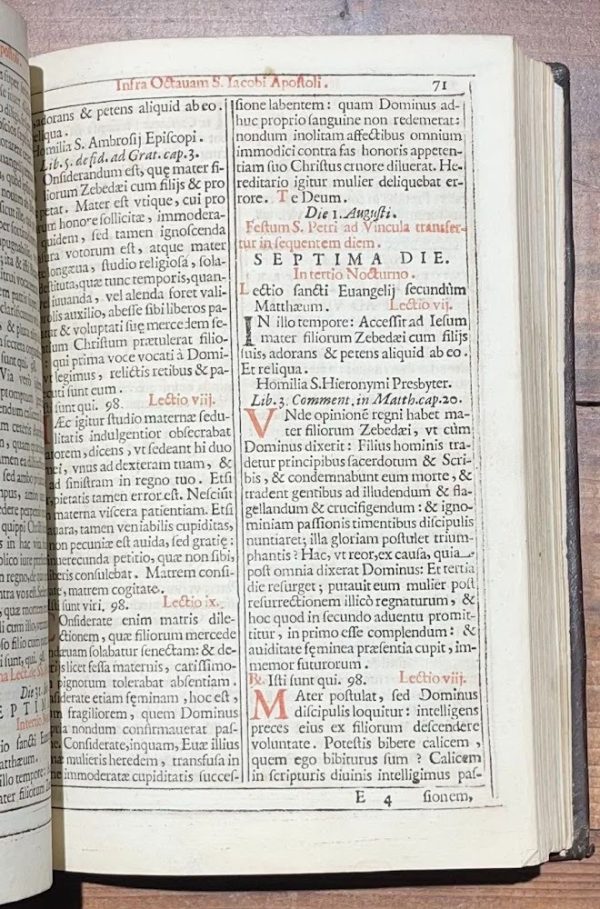 Infra Octauam S. Iacobi Apostoli. 71
adorans & petens aliquid ab eo.
eliqua.
Homilia S. Ambrosij Episcopi.
Lib. 5. de fid. ad Grat. cap. 3.
Onsiderandum est, quę mater fi-
liorum Zebedæi cum filijs & pro
petat. Mater est vtique, cui pro
um honore sollicitæ, immodera-
quidem, sed tamen ignoscenda
ura votorum est, atque mater
longæua, studio religiosa, sola-
destituta, quæ tunc temporis, quan-
el iuuanda, vel alenda foret vali-
prolis auxilio, abesse sibi liberos pa-
ur & voluptati suę mercedem se-
Christum prætulerat filio-
qui prima voce vocati à Domi-
vt legimus, relictis retibus & pa-
ecuti sunt eum.
sti sunt qui. 98. Lectio viij.
Æc igitur studio maternæ sedu-
litatis indulgentior obsecrabat
torem, dicens, vt sedeant hi duo
mei, vnus ad dexteram tuam, &
ad sinistram in regno tuo. Etsi
pietatis tamen error est. Nesciūt
materna viscera patientiam. Etsi
auara, tamen veniabilis cupiditas,
non pecuniæ est auida, sed gratię:
inuerecunda petitio, quæ non sibi,
liberis consulebat. Matrem consi-
te, matrem cogitate.
sti sunt viri. 98. Lectio ix.
Onsiderate enim matris dile-
ctionem, quæ filiorum mercede
uam solabatur senectam: & de-
licet fessa maternis, carissimo-
pignorum tolerabat absentiam.
siderate etiam fęminam, hoc est,
m fragiliorem, quem Dominus
ria nondum confirmauerat pas-
Considerate, inquam, Euæ illius
æ mulieris heredem, transfusa in
ne immoderatæ cupiditatis succes-
sione labentem: quam Dominus ad-
huc proprio sanguine non redemerat:
nondum inolitam affectibus omnium
immodici contra fas honoris appeten-
tiam suo Christus cruore diluerat. He-
reditario igitur mulier deliquebat er-
rore. Te Deum.
Die 1. Augusti.
Festum S. Petri ad Vincula transfer-
tur in sequentem diem.
SEPTIMA DIE.
In tertio Nocturno.
Lectio sancti Euangelij secundùm
Matthæum. Lectio vij.
IN illo tempore: Accessit ad Iesum
mater filiorum Zebedæi cum filijs
suis, adorans & petens aliquid ab eo.
Et reliqua.
Homilia S. Hieronymi Presbyter.
Lib. 3. Comment. in Matth. cap. 20.
VNde opinionē regni habet ma-
ter filiorum Zebedæi, vt cùm
Dominus dixerit: Filius hominis tra-
detur principibus sacerdotum & Scri-
bis, & condemnabunt eum morte, &
tradent gentibus ad illudendum & fla-
gellandum & crucifigendum: & igno-
miniam passionis timentibus discipulis
nuntiaret; illa gloriam postulet trium-
phantis? Hac, vt reor, ex causa, quia
post omnia dixerat Dominus: Et tertia
die resurget; putauit eum mulier post
resurrectionem illicò regnaturum, &
hoc quod in secundo aduentu promit-
titur, in primo esse complendum: &
auiditate fęminea præsentia cupit, im-
memor futurorum.
℟. Isti sunt qui. 98. Lectio viij.
MAter postulat, sed Dominus
discipulis loquitur: intelligens
preces eius ex filiorum descendere
voluntate. Potestis bibere calicem,
quem ego bibiturus sum? Calicem
in scripturis diuinis intelligimus pas-
E 4 sionem,